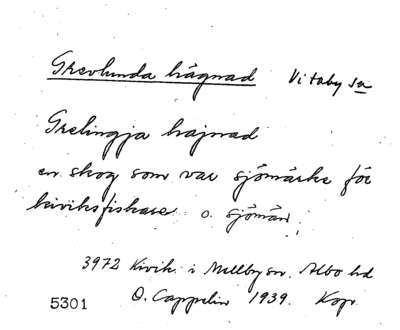 Grevlunda hägnad Vitaby sn
Grelingja hajnad
en skog som var sjömärke för
kiviksfiskare o. sjömän.
3972 Kivik i Mellby sn. Albo hd
5301 O. Cappelin 1939. Kop.